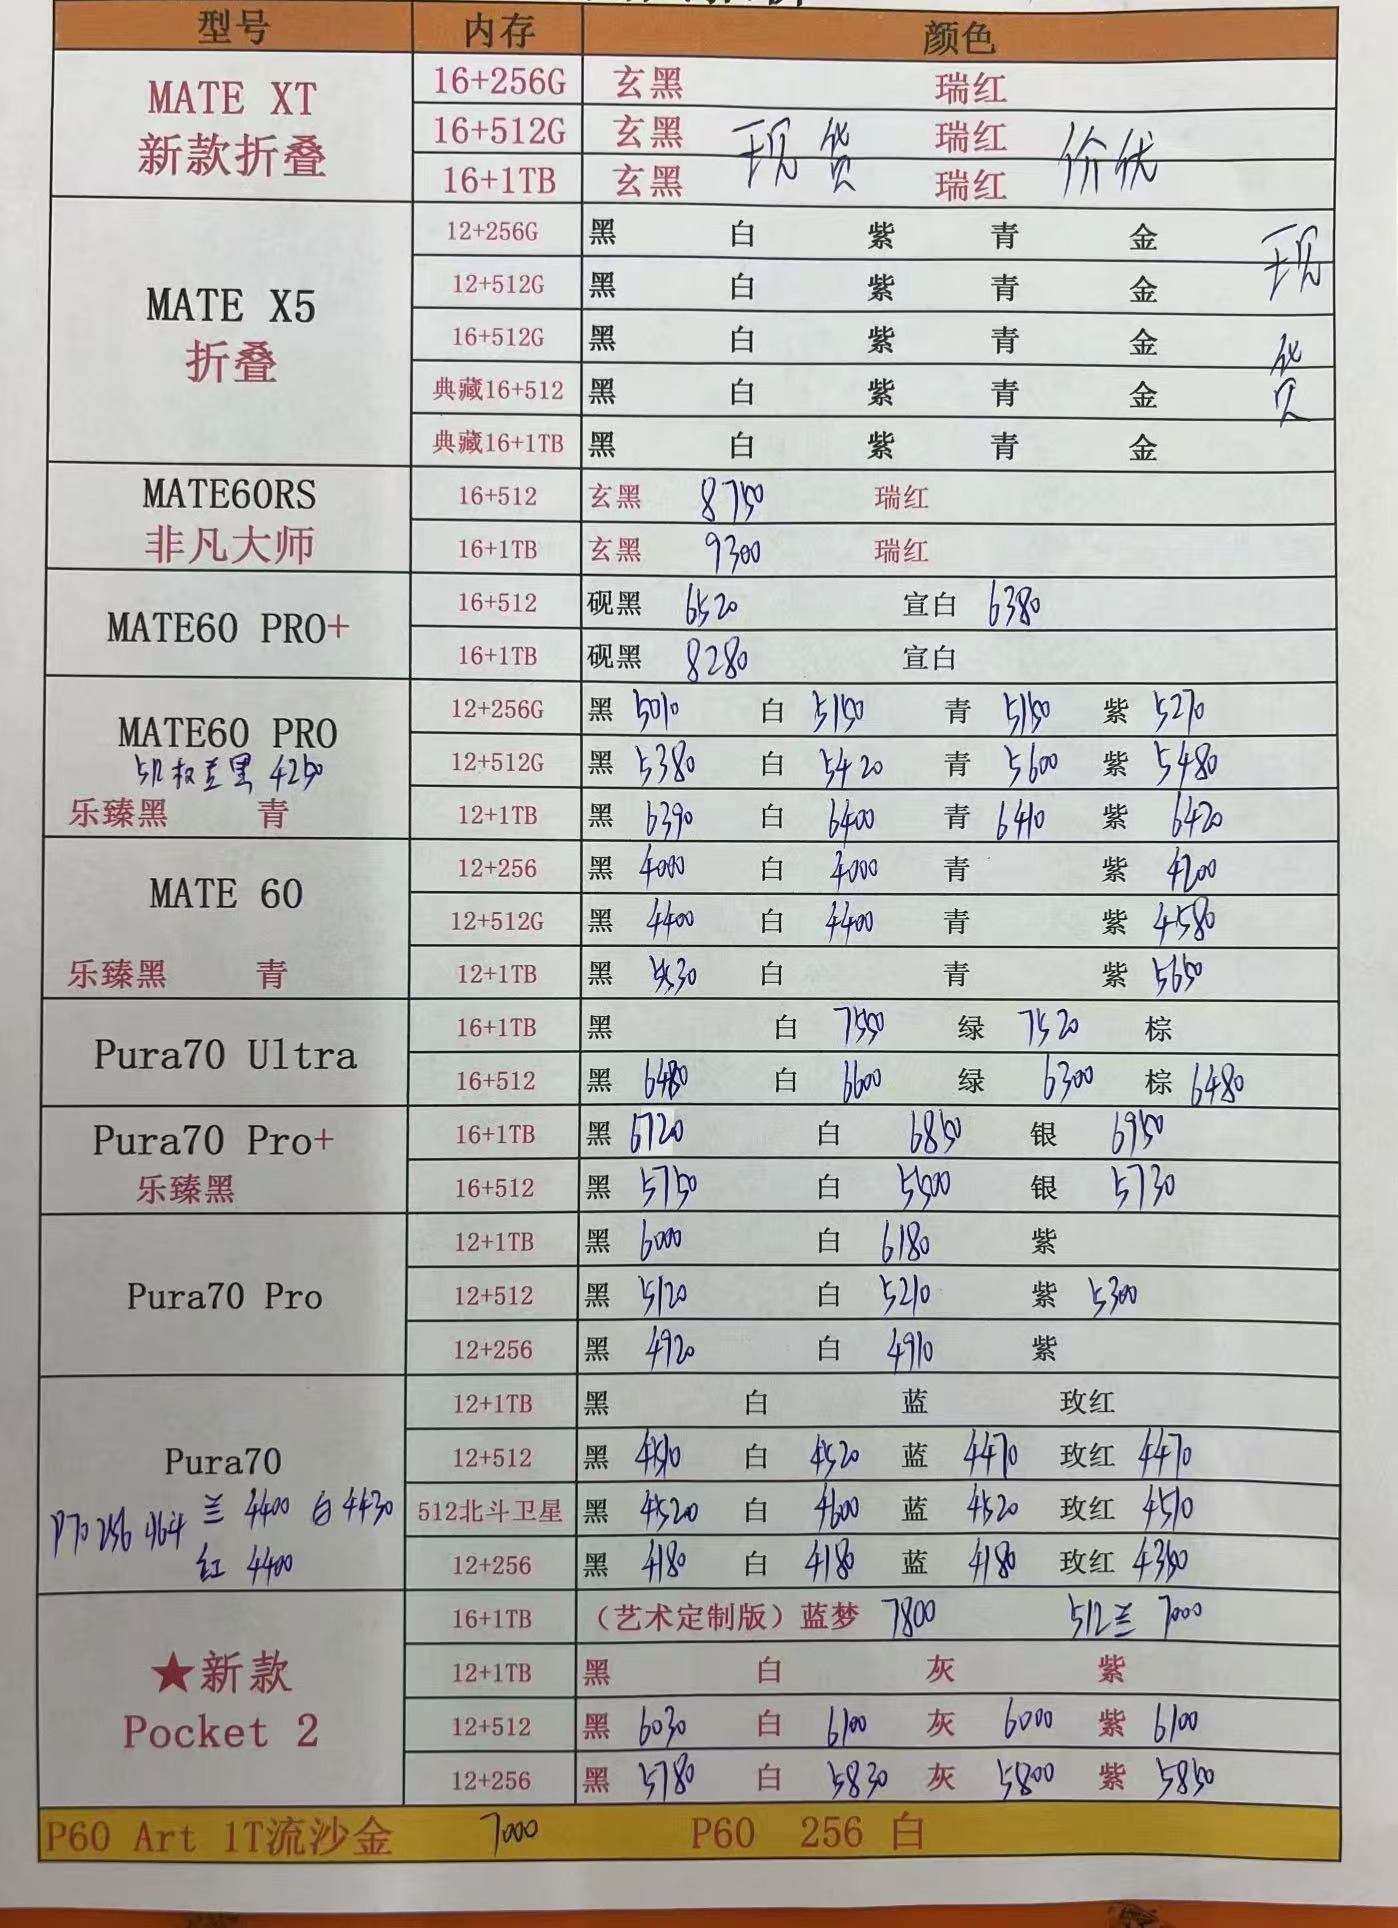 型号 内存 颜色
MATE XT
新款折叠
16+256G 玄黑 瑞红
16+512G 玄黑 现货 瑞红 价优
16+1TB 玄黑 瑞红
MATE X5
折叠
现货
12+256G 黑 白 紫 青 金
12+512G 黑 白 紫 青 金
16+512G 黑 白 紫 青 金
典藏16+512 黑 白 紫 青 金
典藏16+1TB 黑 白 紫 青 金
MATE60RS
非凡大师
16+512 玄黑 8750 瑞红
16+1TB 玄黑 9300 瑞红
MATE60 PRO+
16+512 砚黑 6520 宣白 6380
16+1TB 砚黑 8280 宣白
MATE60 PRO
黑 4250
乐臻黑 青
12+256G 黑 5010 白 5150 青 5150 紫 5270
12+512G 黑 5380 白 5420 青 5600 紫 5480
12+1TB 黑 6390 白 6400 青 6410 紫 6420
MATE 60
乐臻黑 青
12+256 黑 4000 白 4000 青 紫 4200
12+512G 黑 4400 白 4400 青 紫 4580
12+1TB 黑 白 青 紫 5650
Pura70 Ultra
16+1TB 黑 白 7550 绿 7520 棕
16+512 黑 6480 白 6600 绿 6300 棕 6480
Pura70 Pro+
乐臻黑
16+1TB 黑 6720 白 6850 银 6950
16+512 黑 5750 白 5500 银 5730
Pura70 Pro
12+1TB 黑 6000 白 6180 紫
12+512 黑 5120 白 5210 紫 5300
12+256 黑 4920 白 4910 紫
Pura70
P70 256 北斗 兰 4400 白 4430
红 4400
12+1TB 黑 白 蓝 玫红
12+512 黑 4510 白 4520 蓝 4470 玫红 4470
512北斗卫星 黑 4520 白 4600 蓝 4520 玫红 4510
12+256 黑 4180 白 4180 蓝 4180 玫红 4350
★新款
Pocket 2
16+1TB （艺术定制版）蓝梦 7800 512兰 7000
12+1TB 黑 白 灰 紫
12+512 黑 6030 白 6100 灰 6000 紫 6100
12+256 黑 5780 白 5830 灰 5800 紫 5850
P60 Art 1T流沙金 7000 P60 256 白